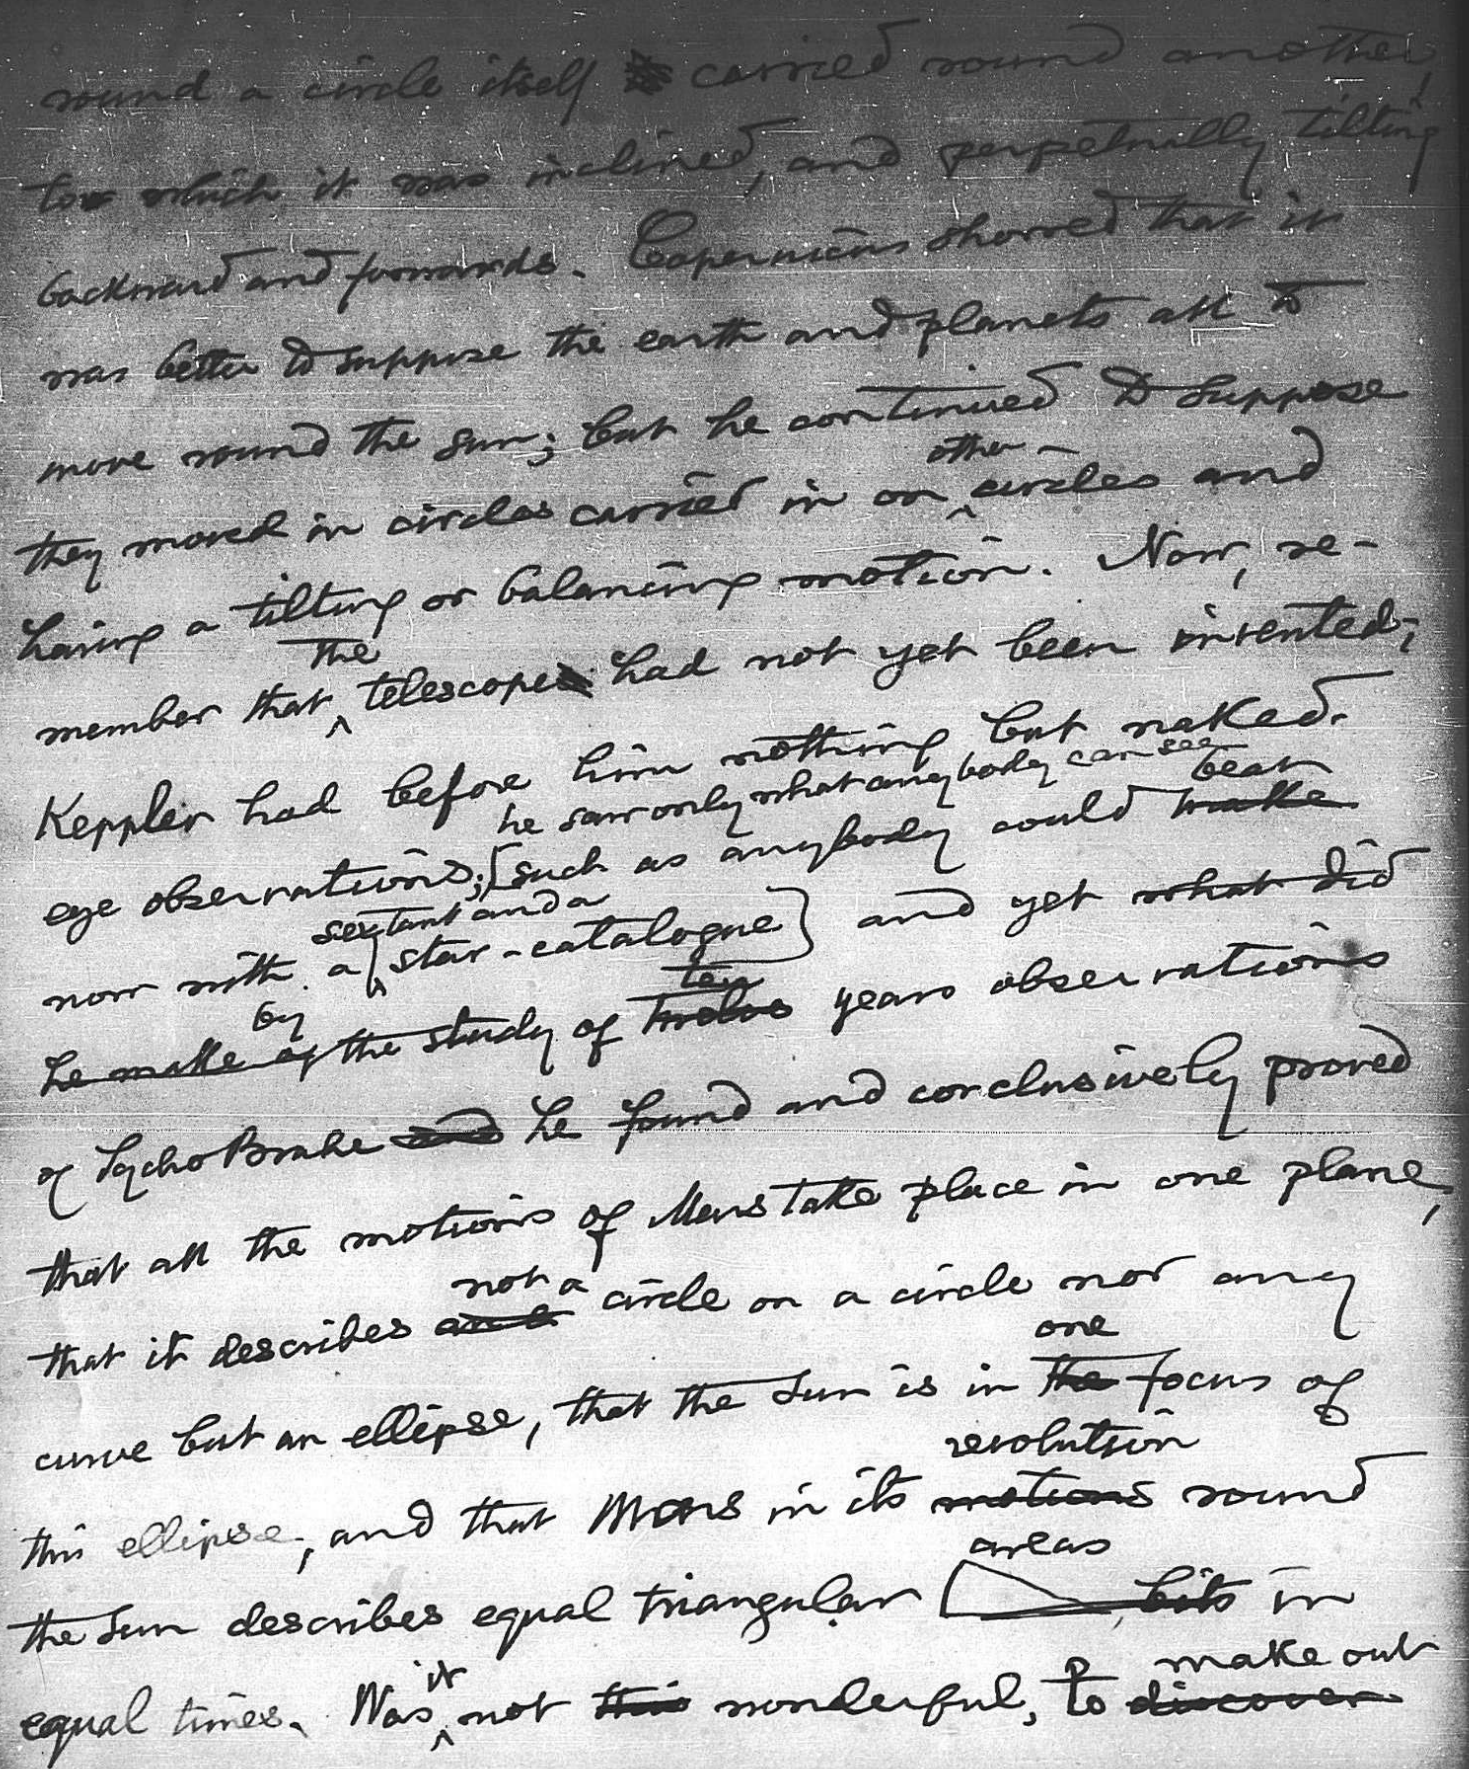 round a circle itself carried round another,
to which it was inclined, and perpetually tilting
backward and forwards. Copernicus showed that it
was better to suppose the earth and planets all to
move round the sun; but he continued to suppose
other
they moved in circles carried in on circles and
having a tilting or balancing motion. Now, re-
the
member that telescopes had not yet been invented;
Keppler had before him nothing but naked-
he saw only what anybody can see
beat
eye observations; [such as anybody could make
sextant and a
now with a star-catalogue] and yet what did
by
ten
he make of the study of twelve years observations
of Tycho Brahe and he found and conclusively proved
that all the motions of Mars take place in one plane,
not a
that it describes circle on a circle nor any
one
curve but an ellipse, that the sun is in the focus of
revolution
this ellipse, and that Mars in its motions round
areas
the sun describes equal triangular bits in
it
make out
equal times. Was not this wonderful, to discover